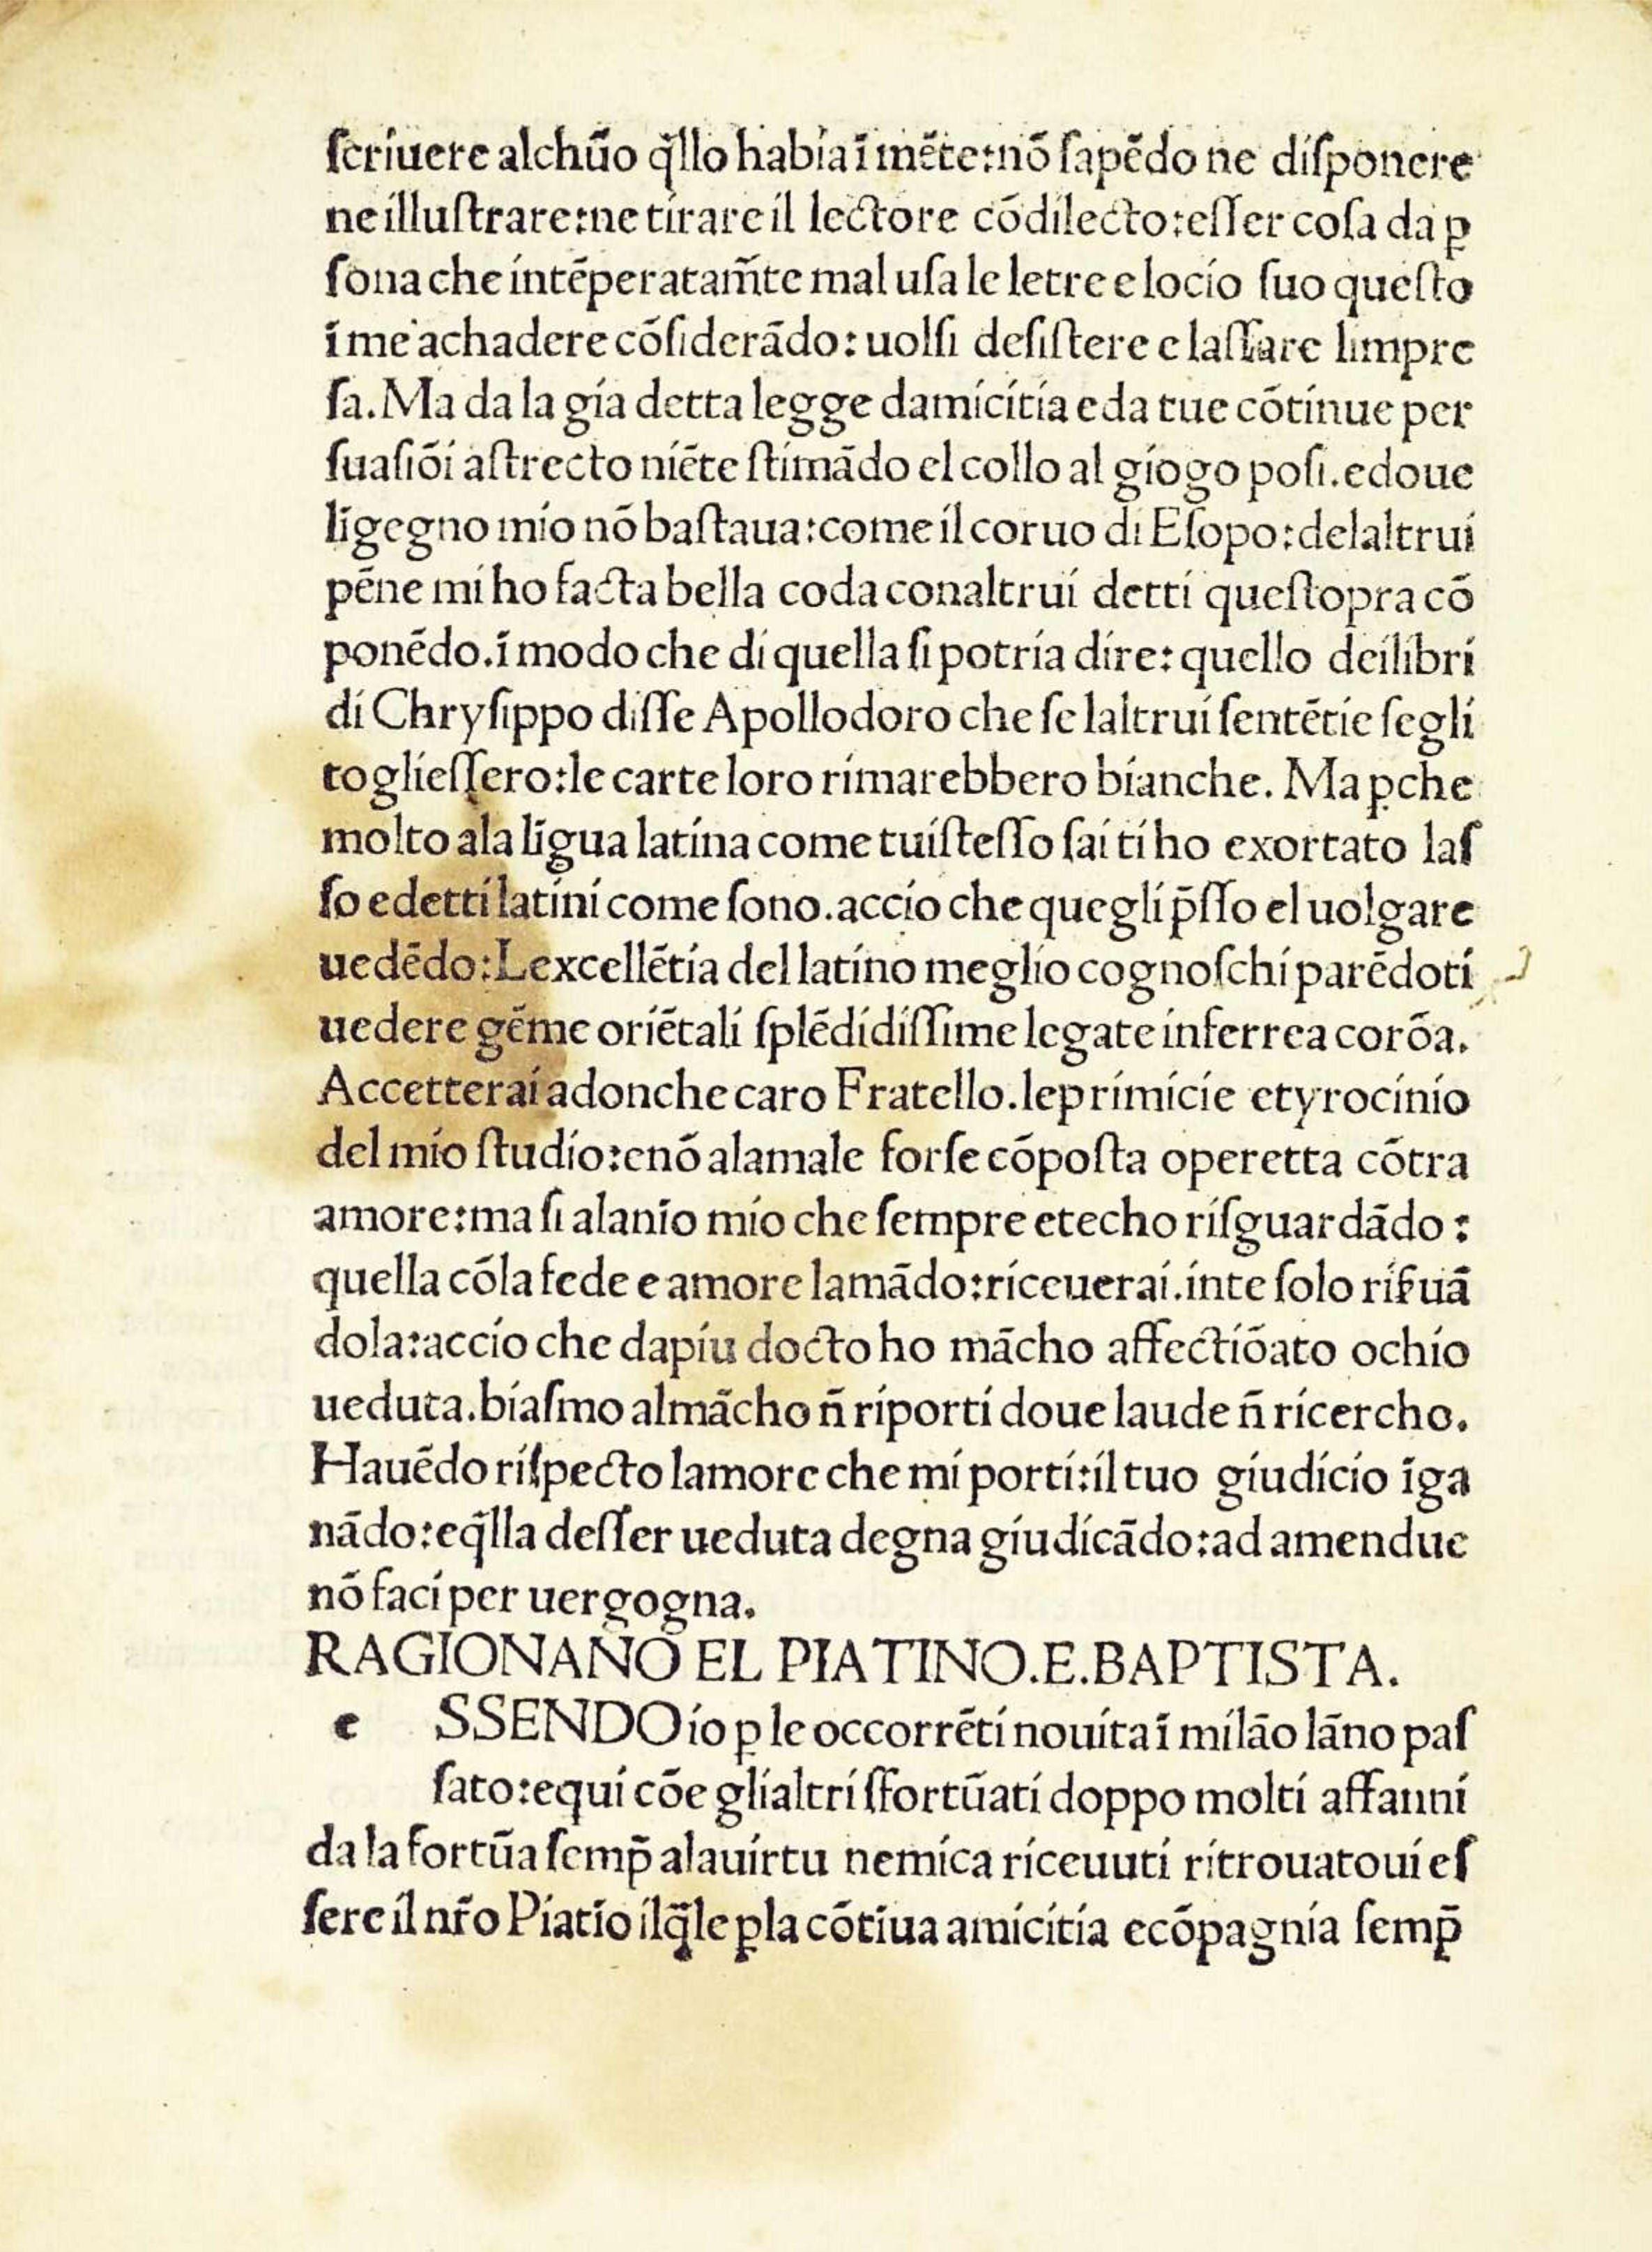 ſcriuere alchūo q̄llo habia ī mēte:nō ſapēdo ne diſponere
ne illuſtrare:ne tirare il lectore cōdilecto:eſſer coſa da ꝑ
ſona che intēperatam̄te mal uſa le letre e locio ſuo queſto
ī me achadere cōſiderādo: uolſi deſiſtere e laſſare limpre
ſa. Ma da la gia detta legge damicitia e da tue cōtinue per
ſuaſiōi aſtrecto niēte ſtimādo el collo al giogo poſi. edoue
līgegno mio nō baſtaua:come il coruo di Eſopo:delaltrui
pēne mi ho facta bella coda conaltrui detti queſtopra cō
ponēdo.ī modo che di quella ſi potria dire: quello deilibri
di Chryſippo diſſe Apollodoro che ſe laltrui ſentētie ſegli
toglieſſero:le carte loro rimarebbero bianche. Ma ꝑche
molto ala līgua latina come tuiſteſſo ſai ti ho exortato laſ
ſo edetti latini come ſono.accio che quegli p̄ſſo el uolgare
uedēdo:Lexcellētia del latino meglio cognoſchi parēdoti
uedere gēme oriētali ſplēdidiſſime legate inferrea corōa.
Accetterai adonche caro Fratello.leprimicie etyrocinio
del mio ſtudio:enō alamale forſe cōpoſta operetta cōtra
amore:ma ſi alanīo mio che ſempre etecho riſguardādo :
quella cōla fede e amore lamādo:riceuerai.inte ſolo riẜuā
dola:accio che dapiu docto ho mācho affectiōato ochio
ueduta.biaſmo almācho n̄ riporti doue laude n̄ ricercho.
Hauēdo riſpecto lamore che mi porti:il tuo giudicio īga
nādo:eq̄lla deſſer ueduta degna giudicādo:ad amendue
nō faci per uergogna.
RAGIONANO EL PIATINO.E.BAPTISTA.
e SSENDO io ꝑ le occorrēti nouita ī milāo lāno paſ
ſato:equi cōe glialtri ſfortūati doppo molti affanni
da la fortūa ſemp̄ alauirtu nemica riceuuti ritrouatoui eſ
ſere il nr̄o Piatīo ilq̄le ꝑla cōtīua amicitia ecōpagnia ſemp̄